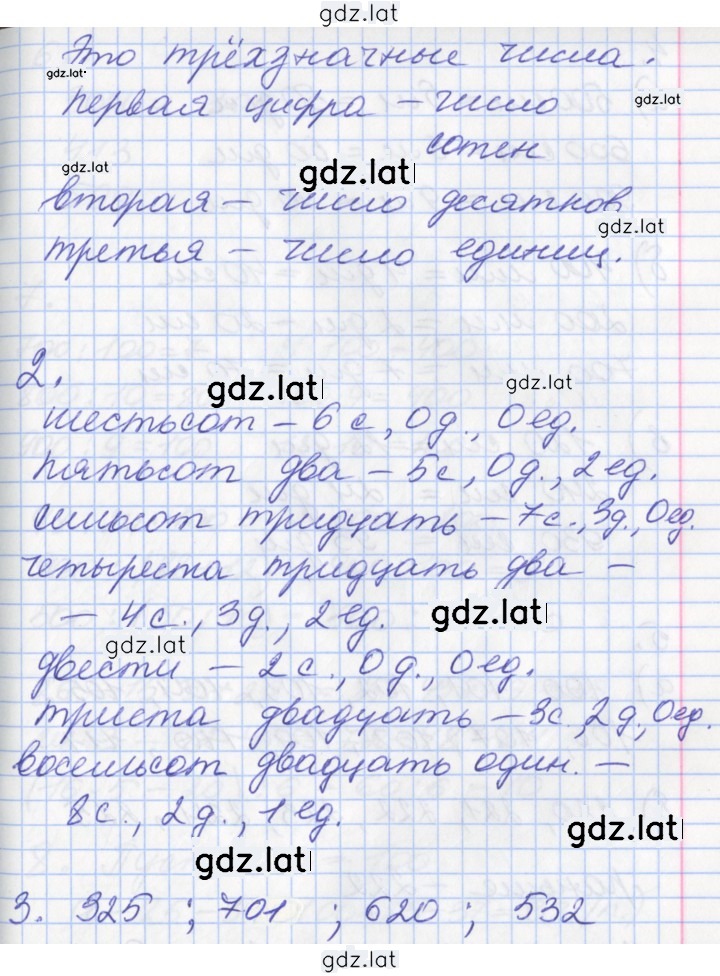 gdz.lat
Это трёхзначные числа.
gdz.lat
первая цифра – число
gdz.lat
сотен
gdz.lat
gdz.lat
вторая – число десятков
gdz.lat
третья – число единиц.
2.
gdz.lat
gdz.lat
шестьсот – 6 с., 0 д., 0 ед.
пятьсот два – 5с., 0 д., 2 ед.
семьсот тридцать – 7с., 3д., 0 ед.
четыреста тридцать два –
– 4 с., 3 д., 2 ед.
gdz.lat
gdz.lat
двести – 2 с., 0 д., 0 ед.
триста двадцать – 3с., 2 д., 0 ед.
восемьсот двадцать один. –
8 с., 2 д., 1 ед.
gdz.lat
gdz.lat
3. 325 ; 701 ; 620 ; 532
gdz.lat